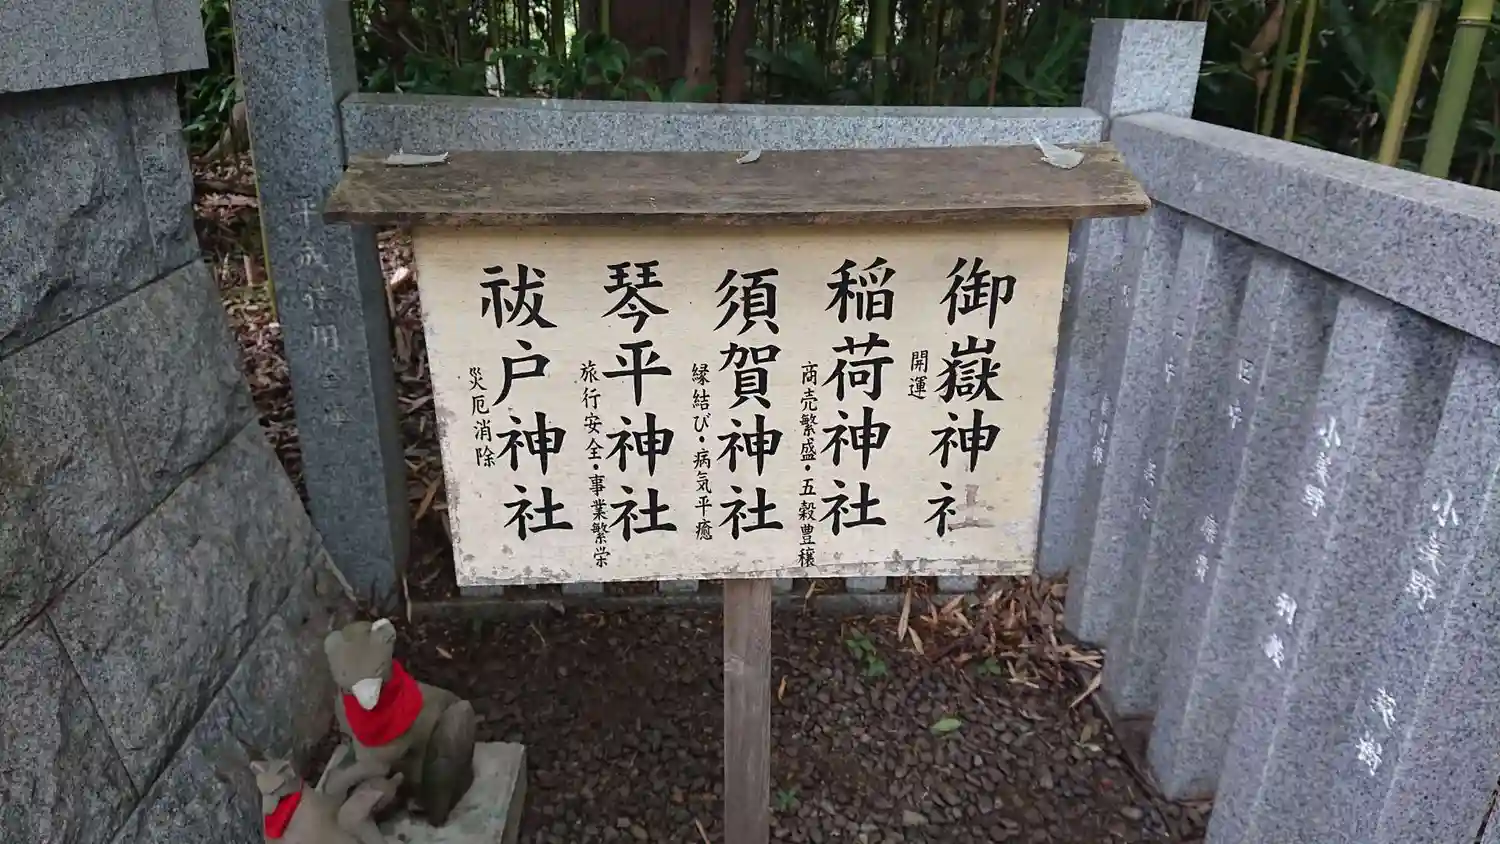 御嶽神社
開運
稲荷神社
商売繁盛・五穀豊穣
須賀神社
縁結び・病気平癒
琴平神社
旅行安全・事業繁栄
祓戸神社
災厄消除